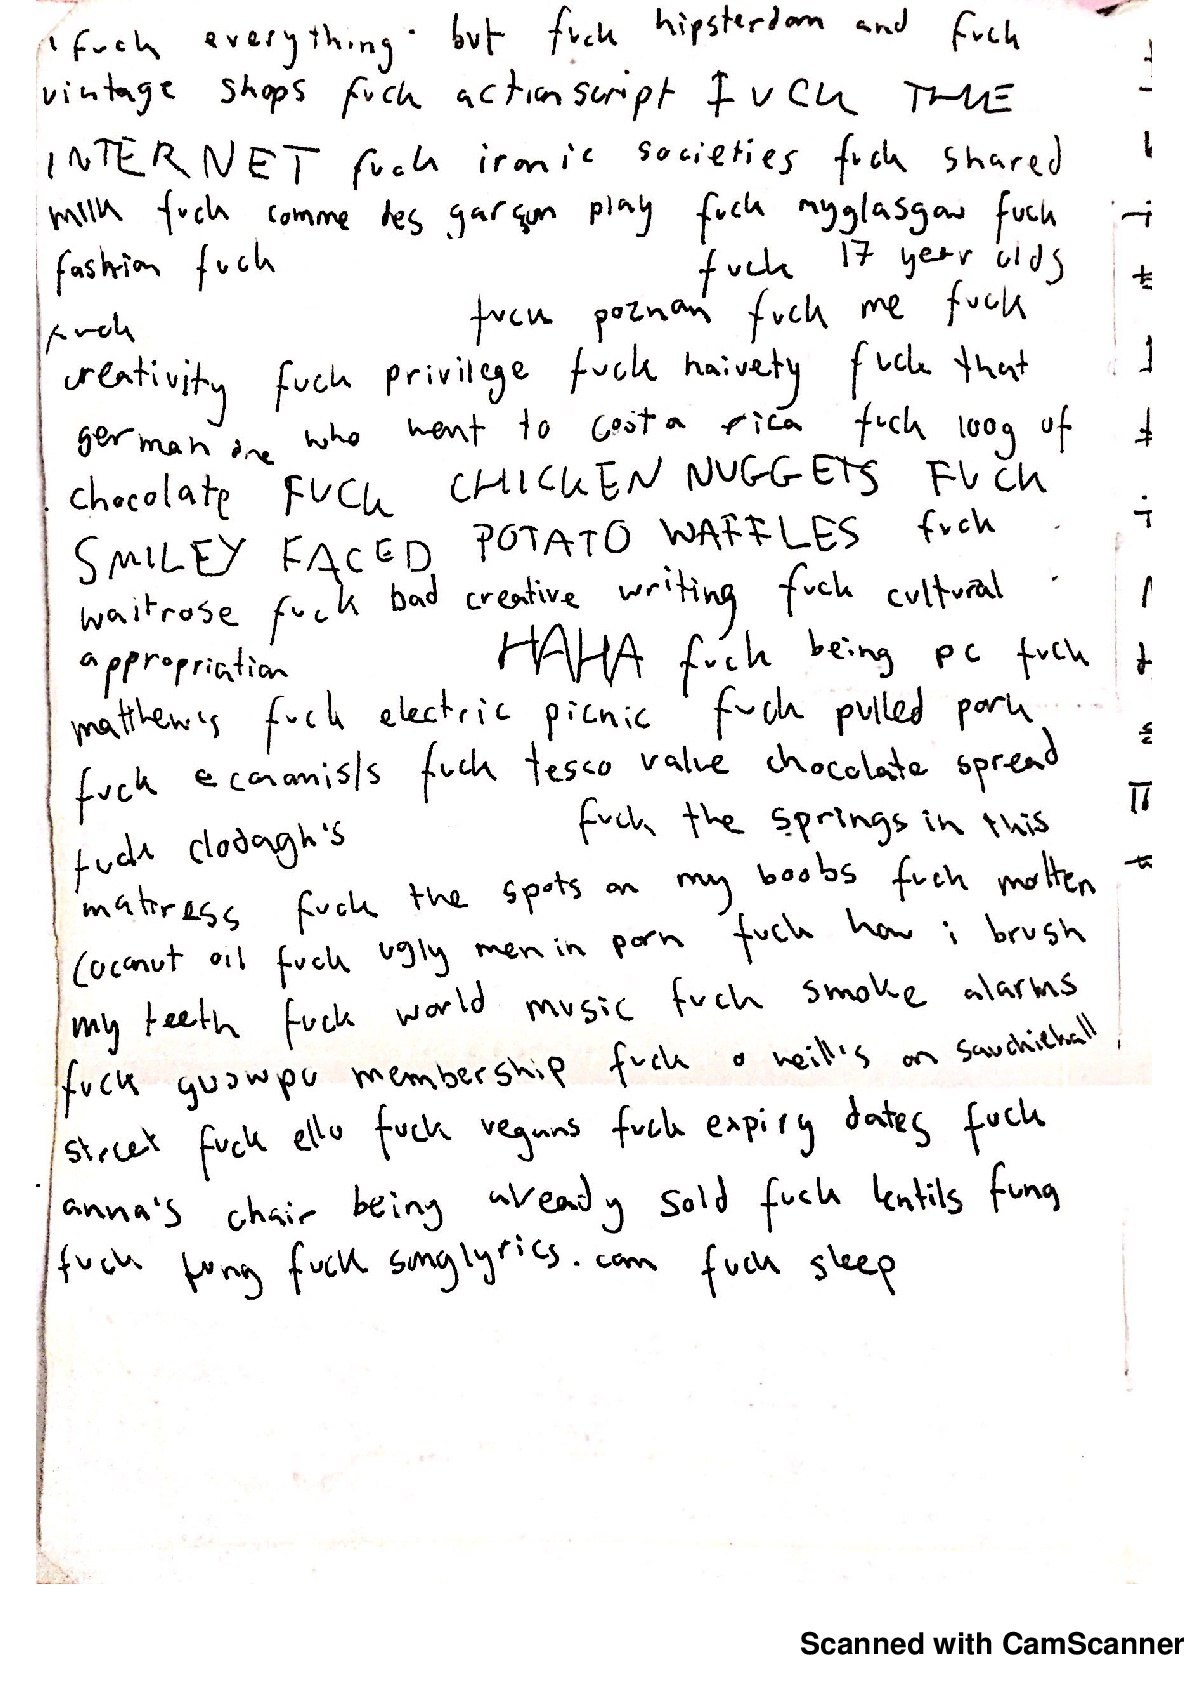 'fuck everything' but fuck hipsterdom and fuck
vintage shops fuck actionscript FUCK THE
INTERNET fuck ironic societies fuck shared
milk fuck comme des garçon play fuck myglasgow fuck
fashion fuck fuck 17 year olds
fuck fuck poznan fuck me fuck
creativity fuck privilege fuck naivety fuck that
german one who went to costa rica fuck 100g of
chocolate FUCK CHICKEN NUGGETS FUCK
SMILEY FACED POTATO WAFFLES fuck
waitrose fuck bad creative writing fuck cultural
appropriation HAHA fuck being pc fuck
matthew's fuck electric picnic fuck pulled pork
fuck fuck tesco value chocolate spread
fuck clodagh's fuck the springs in this
matress fuck the spots on my boobs fuck molten
coconut oil fuck ugly men in porn fuck how i brush
my teeth fuck world music fuck smoke alarms
fuck membership fuck o neill's on sauchiehall
street fuck ello fuck vegans fuck expiry dates fuck
anna's chair being already sold fuck lentils fung
fuck fung fuck songlyrics.com fuck sleep
Scanned with CamScanner